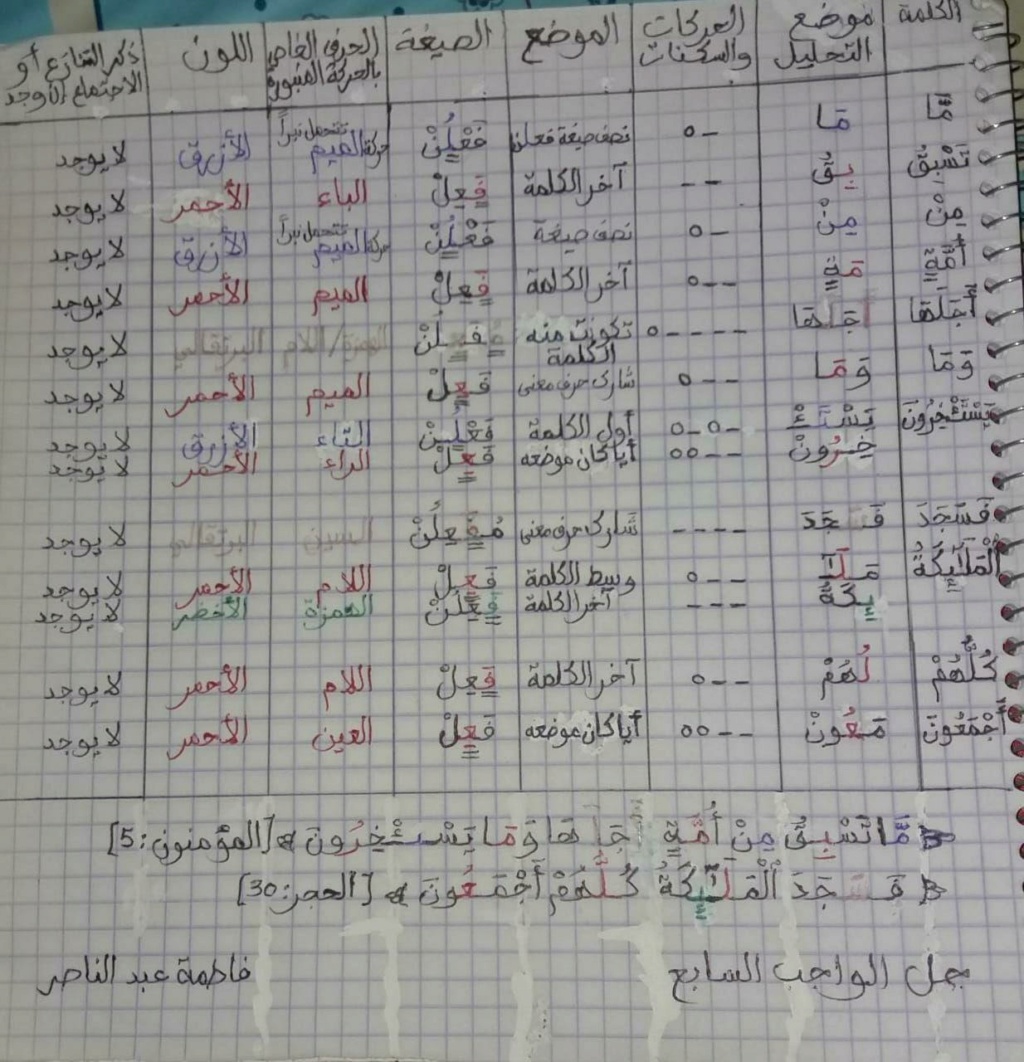 الكلمة | موضع التحليل | الحركات والسكنات | الموضع | الصيغة | الحرف الخاص بالحركة المنبورة | اللون | ذكر التنازع أو الاجتماع إن وجد
مَّا | مَا | -o | نصف صيغة فعلن | فَعْلُنْ | حركة الميم تتحمل نبراً | الأزرق | لا يوجد
تَسْبِقُ | بِقُ | -- | آخر الكلمة | فَعِلْ | الباء | الأحمر | لا يوجد
مِنْ | مِنْ | -o | نصف صيغة | فَعْلُنْ | حركة الميم تتحمل نبراً | الأزرق | لا يوجد
أُمَّةٍ | مَةٍ | --o | آخر الكلمة | فَعِلْ | الميم | الأحمر | لا يوجد
أَجَلَهَا | جَلَهَا | ----o | تكونت منه الكلمة | الهمزة/اللام | البرتقالي | لا يوجد
وَمَا | وَمَا | --o | شارك حرف معنى | فَعِلْ | الميم | الأحمر | لا يوجد
يَسْتَـْٔخِرُونَ | يَسْتَـْٔ | -o-o | أول الكلمة | فَعْلُنْ | التاء | الأزرق | لا يوجد
خِرُونْ | --oo | أياً كان موضعه | فَعِلْ | الراء | الأحمر | لا يوجد
فَسَجَدَ | فَسَجَدَ | ---- | شارك حرف معنى | السين | البرتقالي | لا يوجد
ٱلْمَلَٰٓئِكَةُ | مَلَٰٓ | --o | وسط الكلمة | فَعِلْ | اللام | الأحمر | لا يوجد
ئِكَةُ | --- | آخر الكلمة | فَعِلُنْ | الهمزة | الأخضر | لا يوجد
كُلُّهُمْ | لُهُمْ | --o | آخر الكلمة | فَعِلْ | اللام | الأحمر | لا يوجد
أَجْمَعُونَ | مَعُونْ | --oo | أياً كان موضعه | فَعِلْ | العين | الأحمر | لا يوجد
﴿ مَّا تَسْبِقُ مِنْ أُمَّةٍ جَلَهَا وَمَا يَسْتَـْٔخِرُونَ ﴾ [المؤمنون:5]
﴿ فَسَجَدَ ٱلْمَلَٰٓئِكَةُ كُلُّهُمْ أَجْمَعُونَ ﴾ [الحجر:30]
حل الواجب السابع
فاطمة عبد الناصر